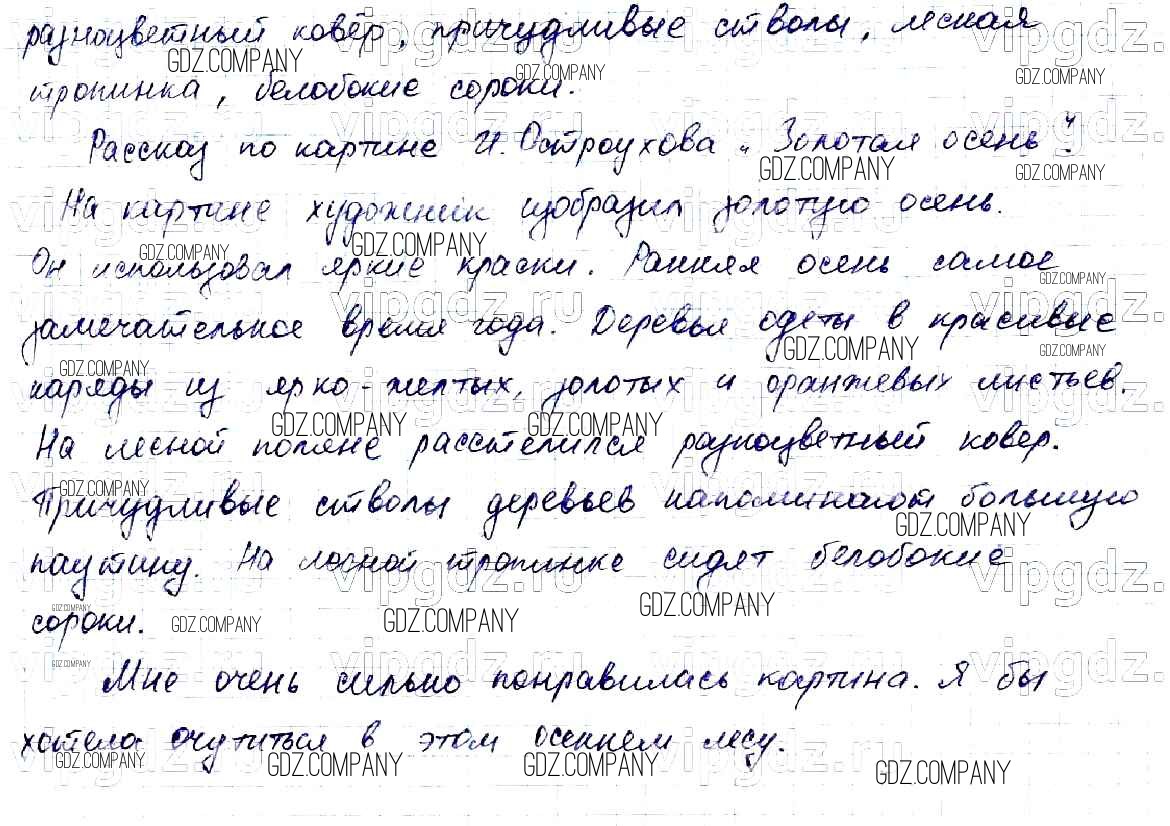 разноцветный ковёр, причудливые стволы, лесная
тропинка, белобокие сороки.
Рассказ по картине И. Остроухова „Золотая осень".
На картине художник изобразил золотую осень.
Он использовал яркие краски. Ранняя осень самое
замечательное время года. Деревья одеты в красивые
наряды из ярко-желтых, золотых и оранжевых листьев.
На лесной поляне расстелился разноцветный ковер.
Причудливые стволы деревьев напоминают большую
паутину. На лесной тропинке сидят белобокие
сороки.
Мне очень сильно понравилась картина. Я бы
хотела очутиться в этом осеннем лесу.
GDZ.COMPANY
vipgdz.ru